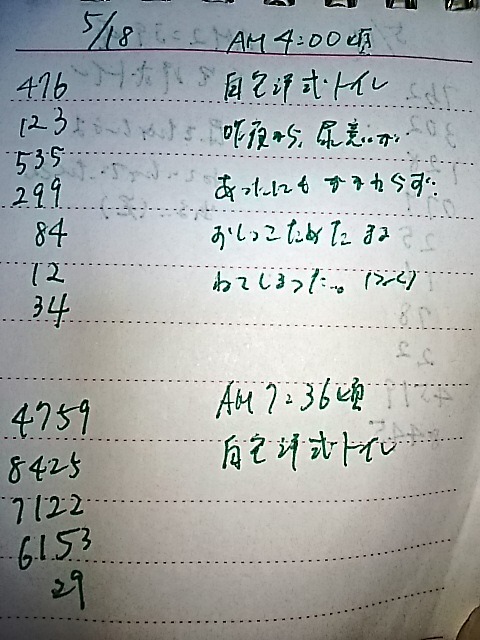 5/18 AM 4:00頃
476 自宅洋式トイレ
123 昨夜から、尿意が
535
299 あったにもかかわらず、
84 おしっこためたまま
12 ねてしまった…。
34
4759 AM 7:36頃
8425 自宅洋式トイレ
7122
6153
29